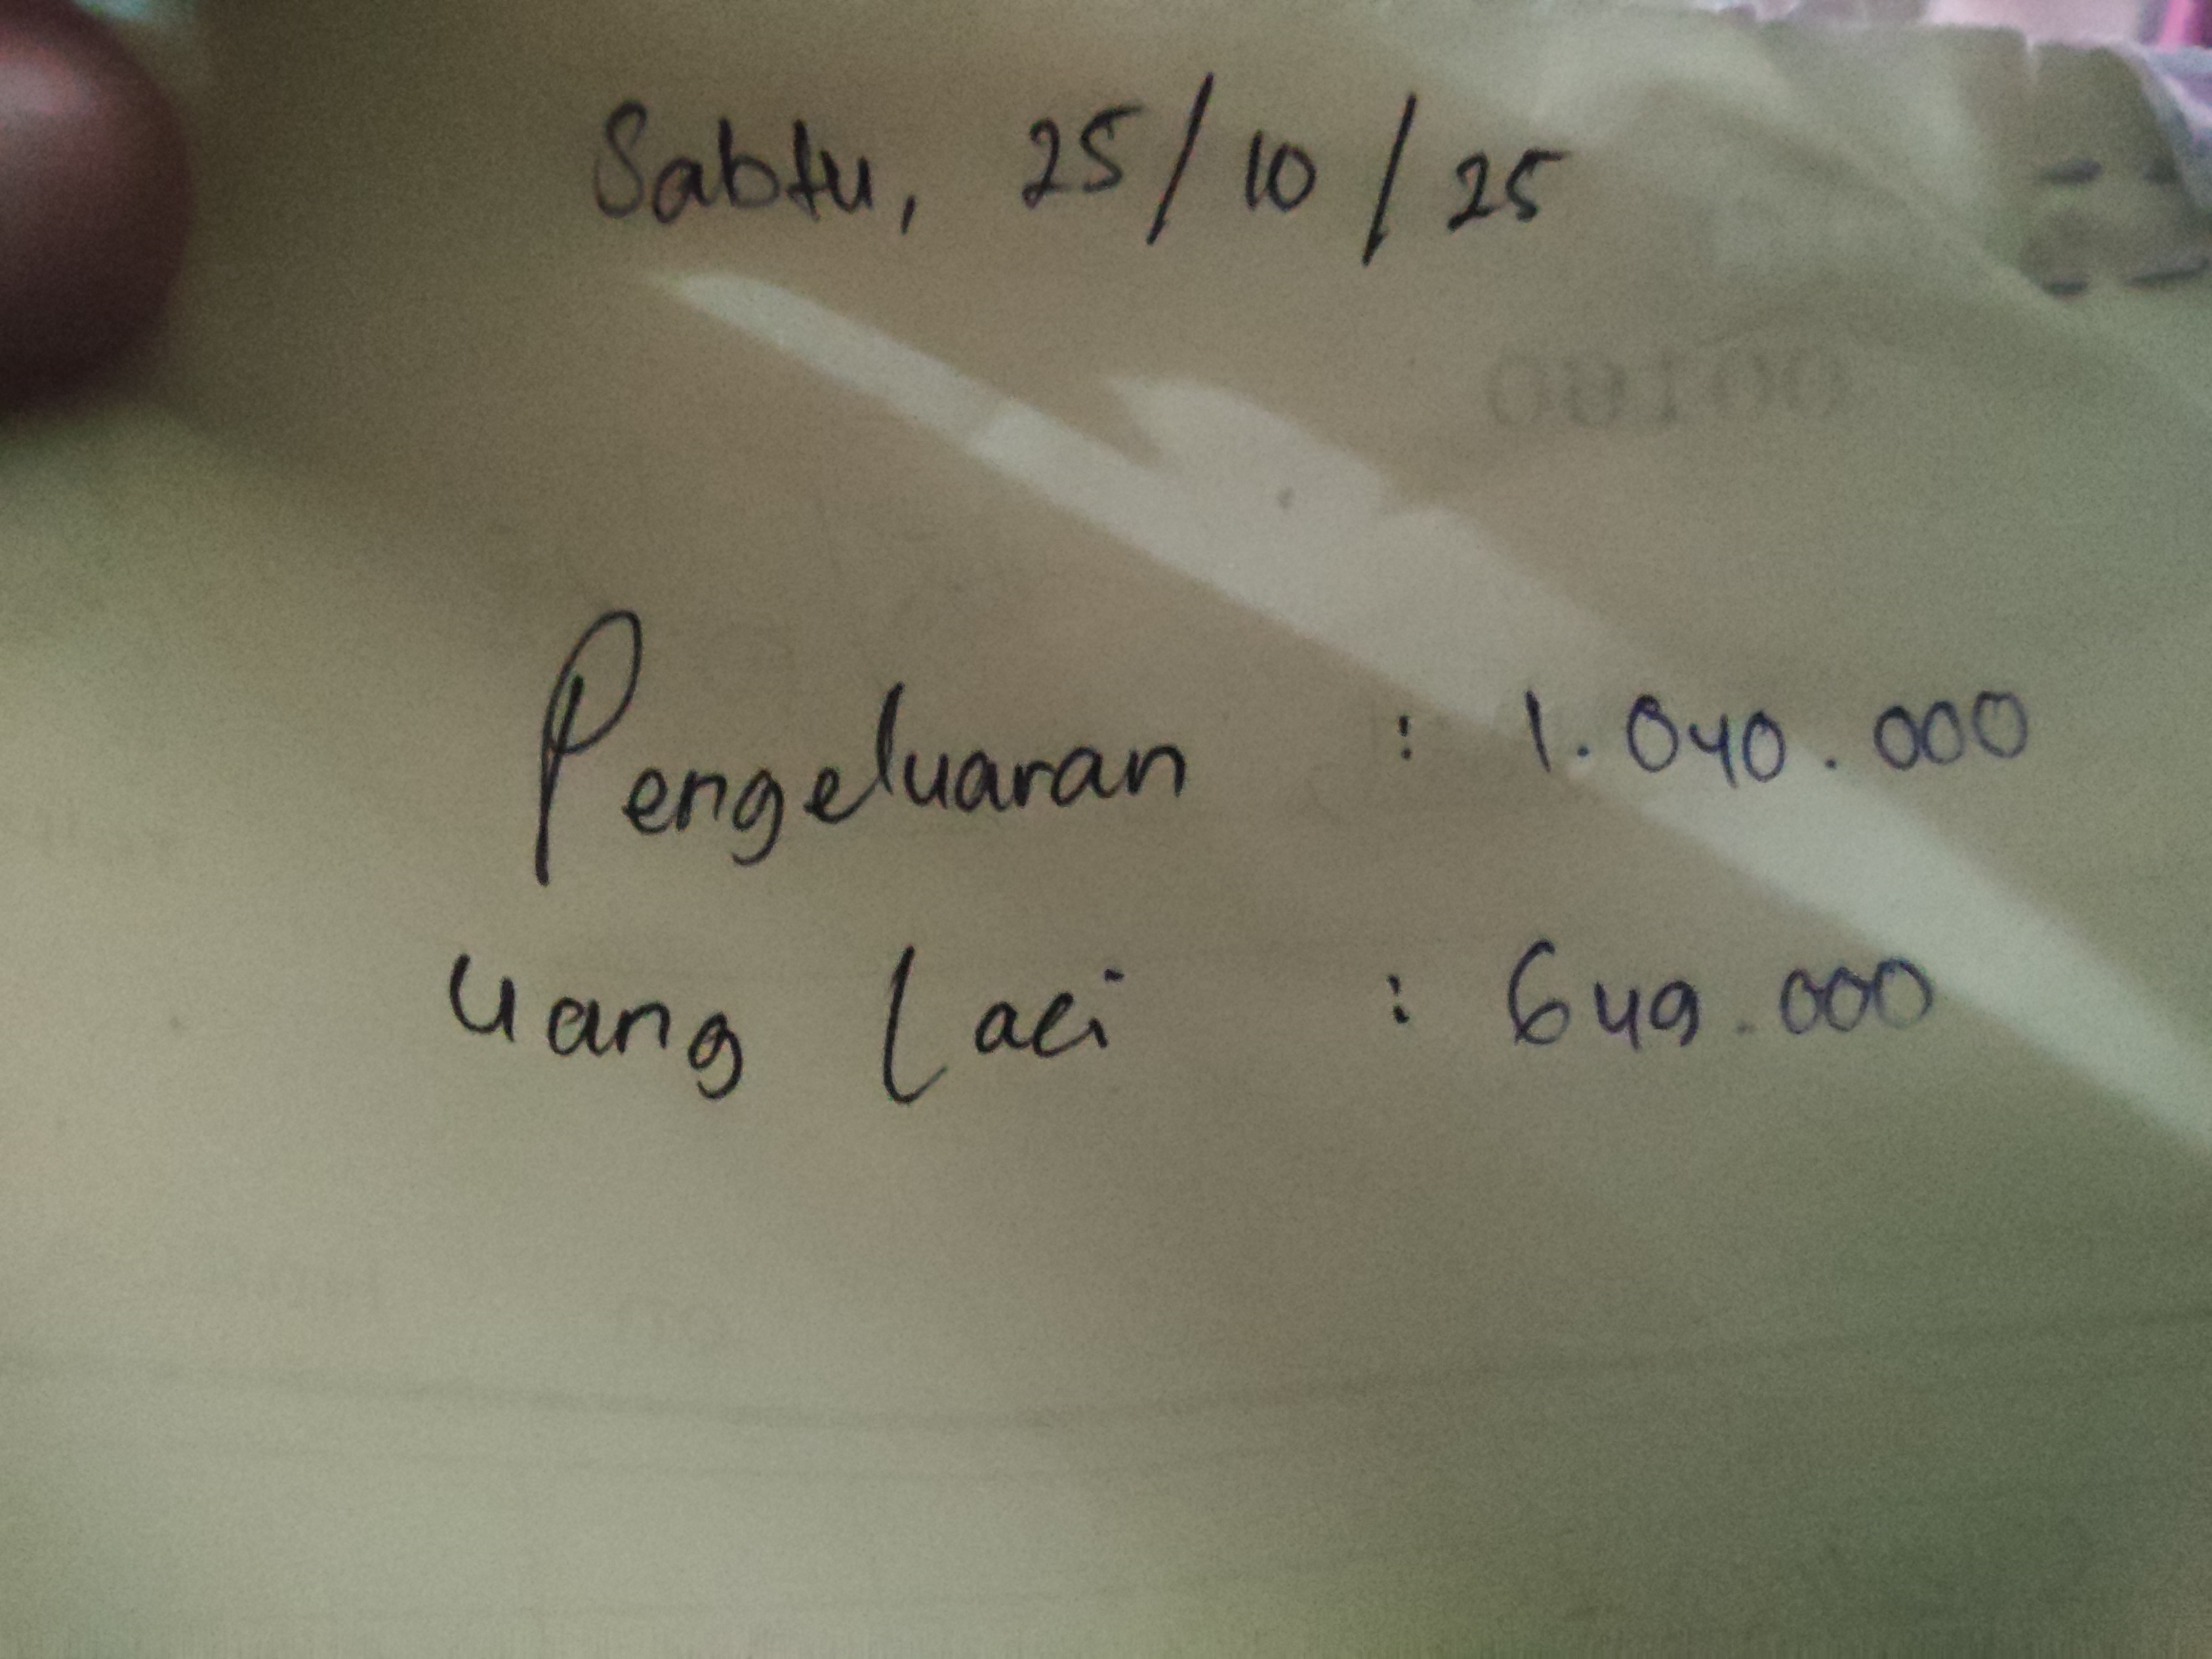 Sabtu, 25/10/25
Pengeluaran : 1.040.000
Uang Laci : 649.000